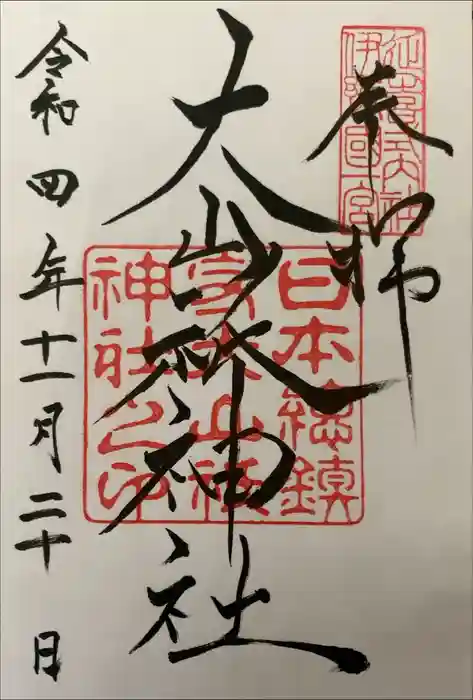 延喜式社
伊豫國一宮
奉拝
日本總鎮
守大山祇
神社之印
大山祇神社
令和四年十一月二十日